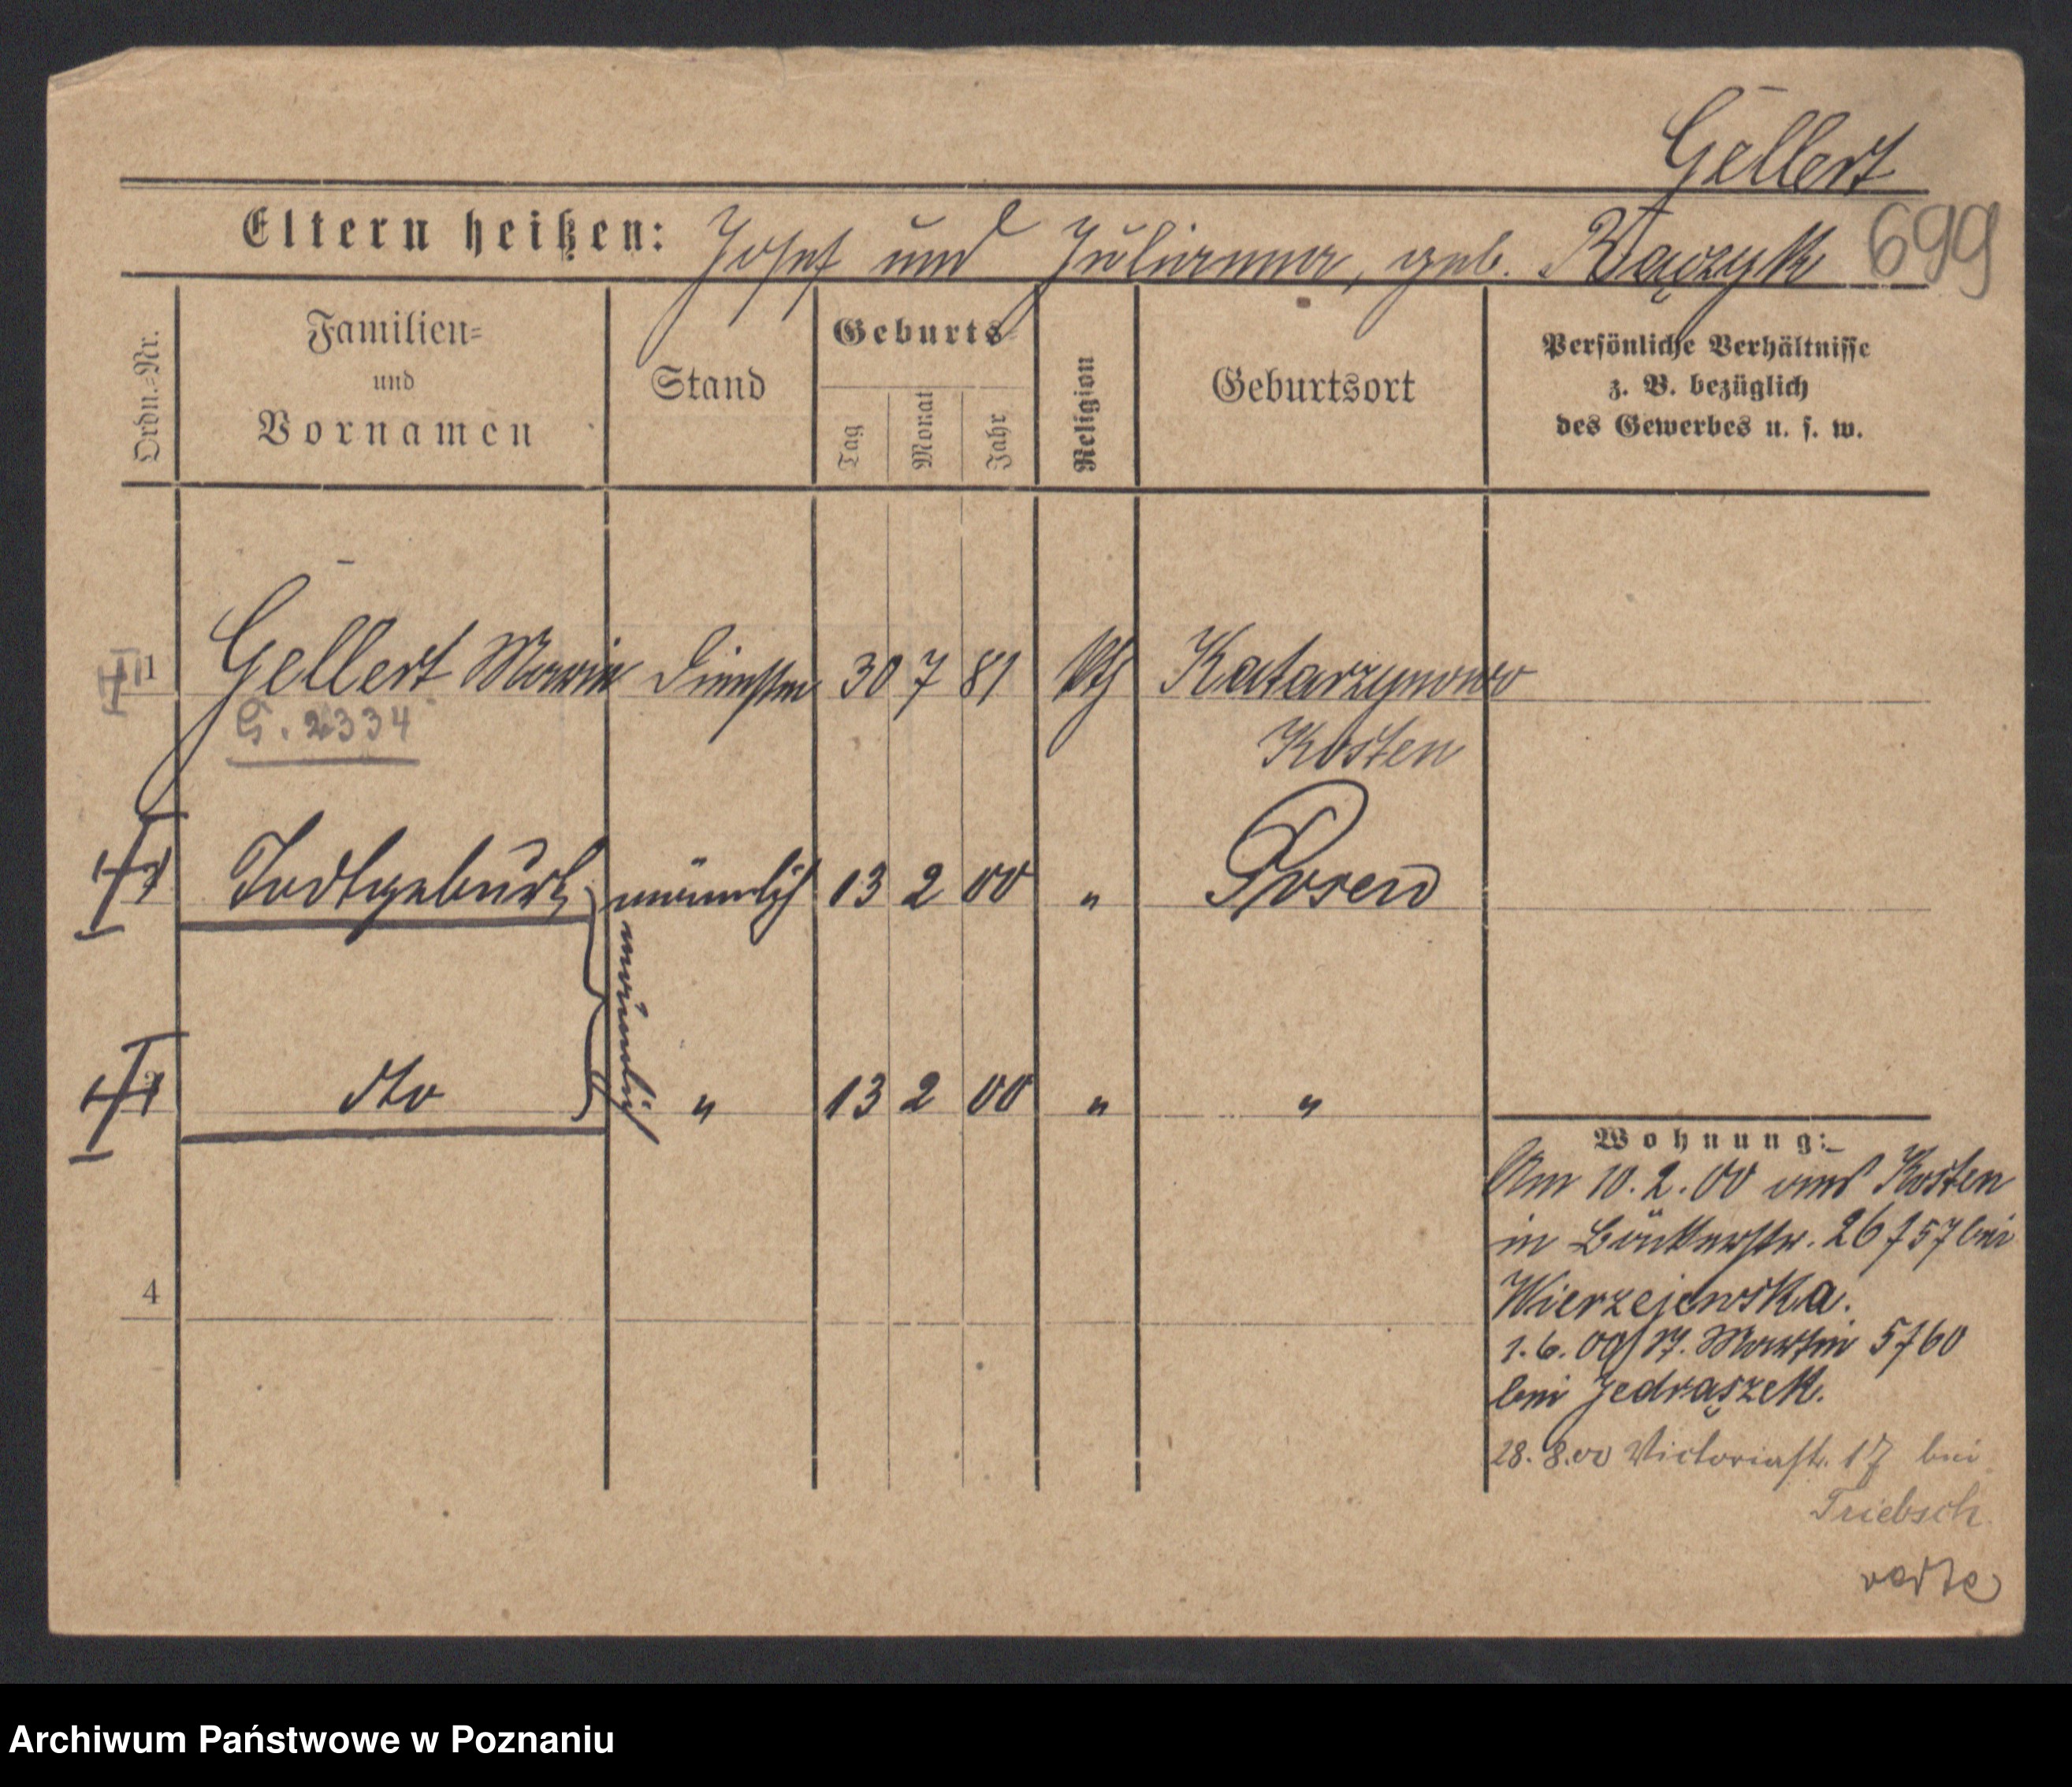 Gellert
Eltern heißen: Josef und Julianna, geb. Rączyk 699
Ordn.=Nr.
Familien=
und
Vornamen
Stand
Geburts=
Tag
Monat
Jahr
Religion
Geburtsort
Persönliche Verhältnisse
z. B. bezüglich
des Gewerbes u. s. w.
1 Gellert Marie 30 7 81 kth Katarzynowo
G. 2334
Kosten
Todtgeburt männlich 13 2 00 " Posen
männlich
dto " 13 2 00 " "
4
Wohnung:
Am 10.2.00 aus Kosten
in Bäckerstr. 26 f 57 bei
Wierzejewska.
1.6.00 Martin 5760
bei Jedraszek.
28.8.00 Victoriastr. 17 bei
Triebsch